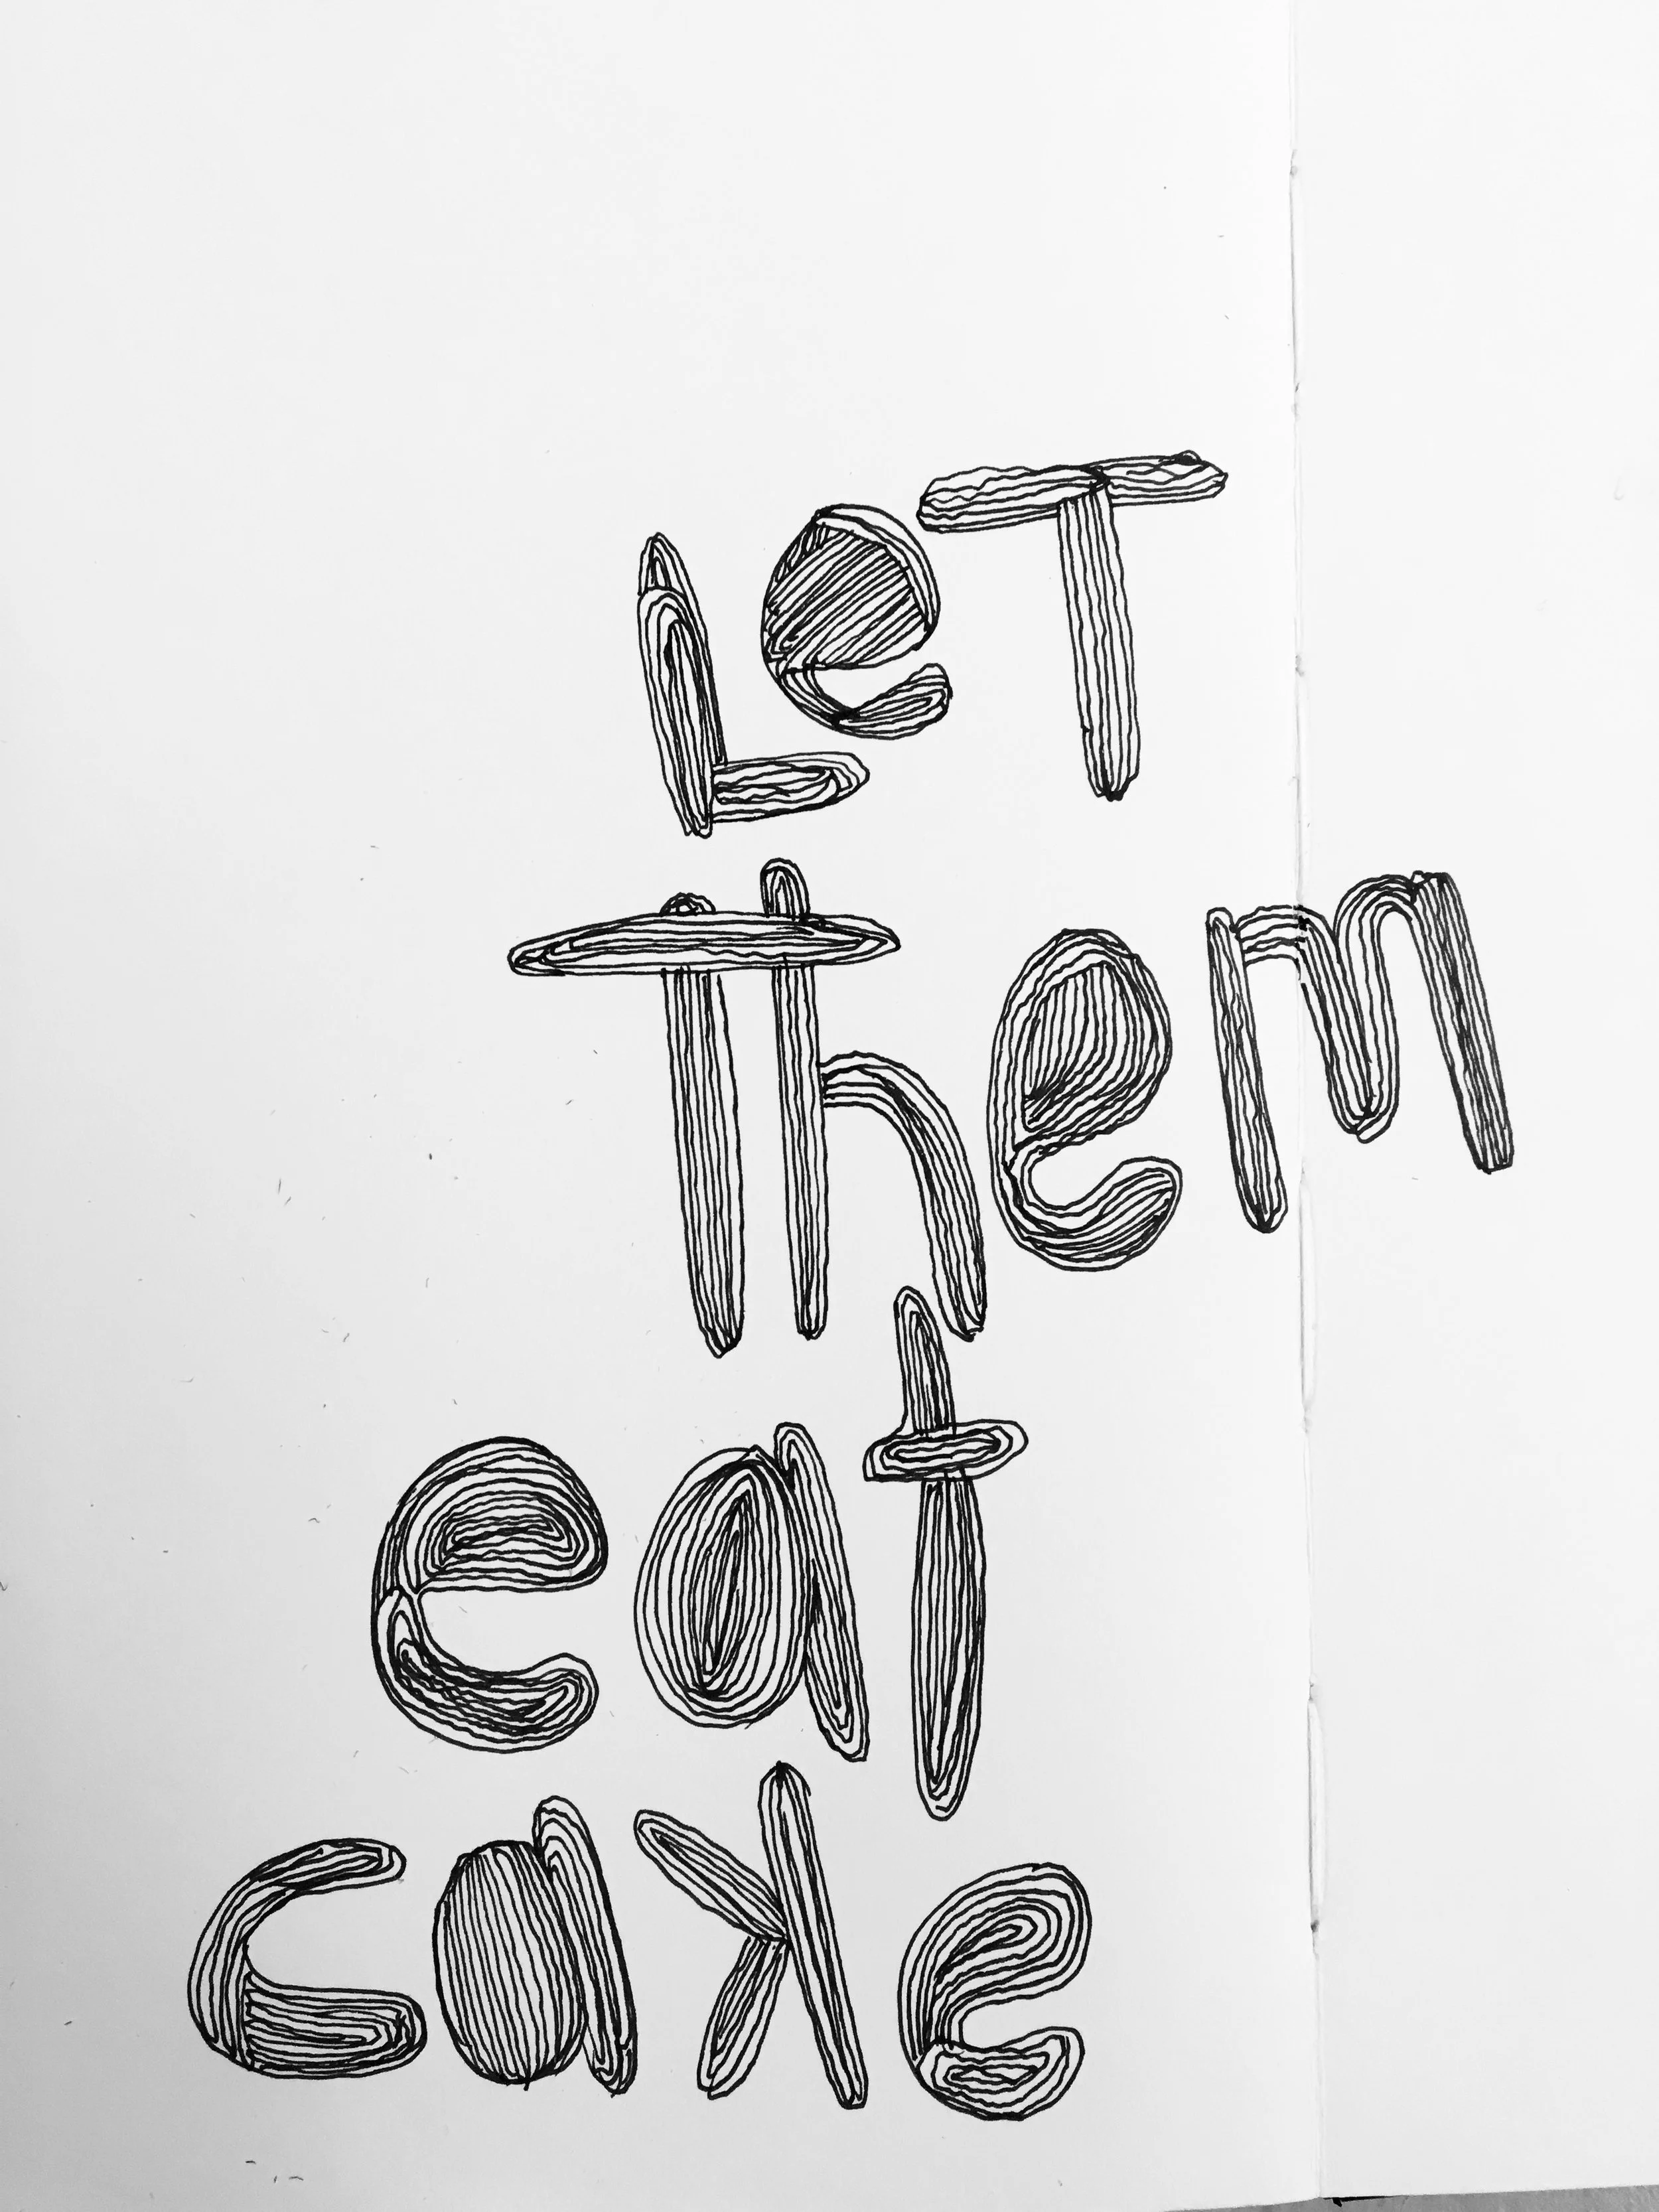 LeT
them
eat
cake